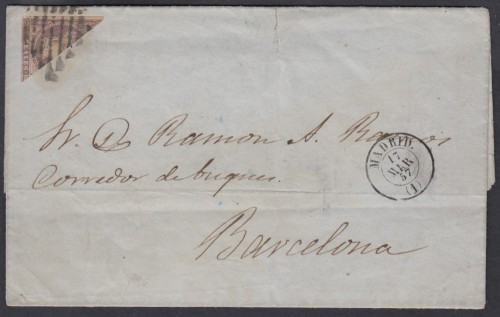 Sr. D. Ramon A. Ramos
Corredor de buques.
Barcelona
MADRID.
17
MAR
57
(1)